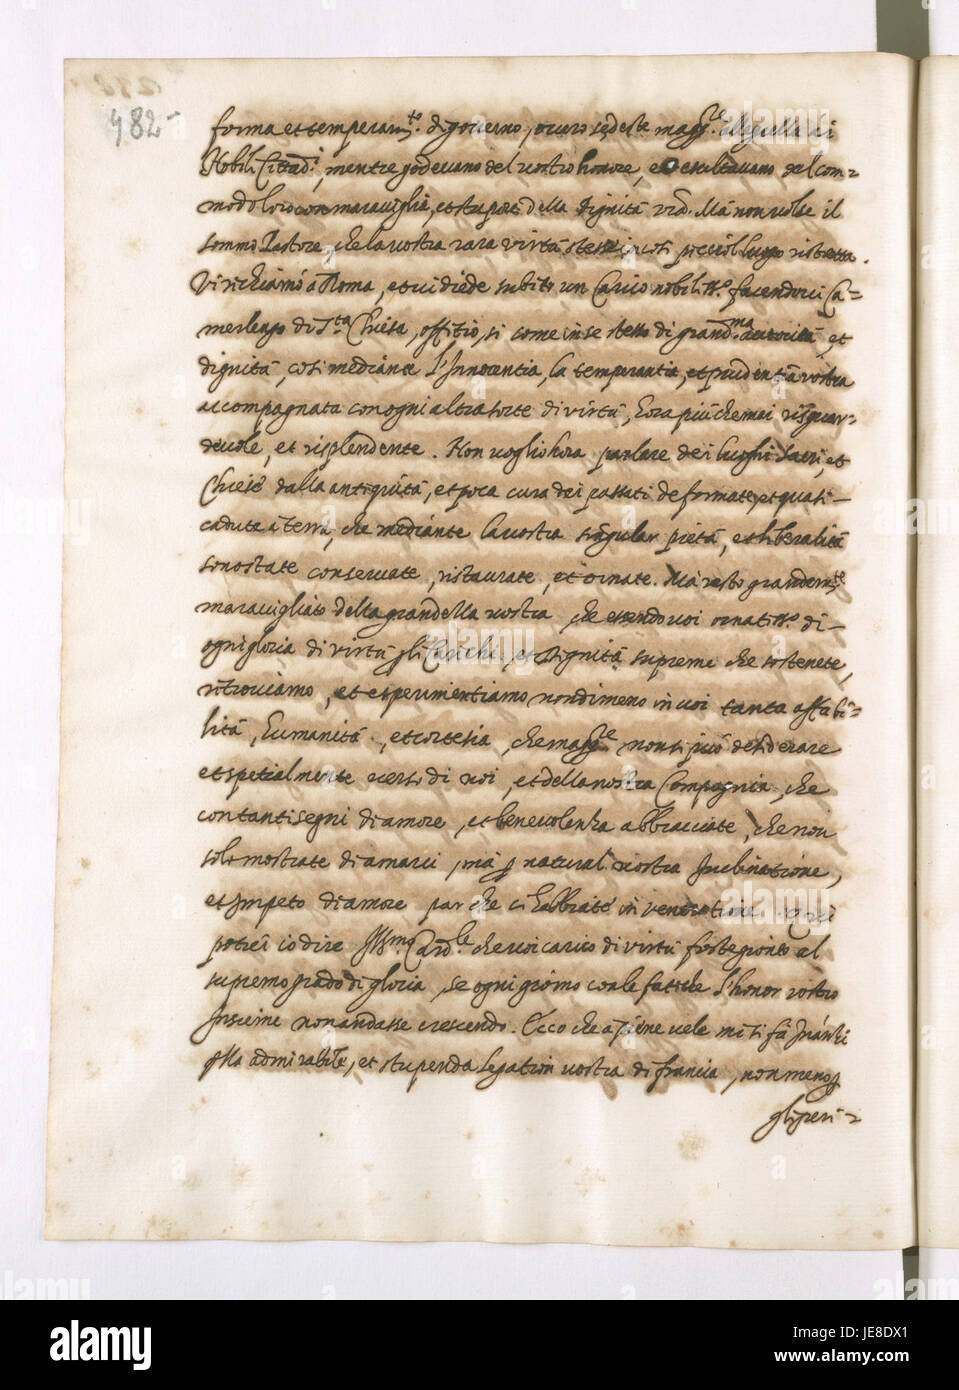 482
forma et temperam.to di governo, overo sedeste magg.re allegrezza ai
Nobili Cittad.i, mentre godevano del vostro honore, et essultavano del com=
modo loro con maraviglia, et stupor della dignità vrã. Mà non volse il
sommo Pastore, che la vostra rara virtù stesse in così picciol luogo ristretta.
Vi richiamó à Roma, et vi diede subito un Carico nobiliss.o facendovi Ca=
merlengo di S.ta Chiesa, offitio, si come in se stesso di grand.ma autorità, et
dignità, così mediante l'Innocentia, la temperantia, et prudentia vostra
accompagnata con ogni altra sorte di virtù, hora più che mai risguar=
devole, et risplendente. Non voglio hora parlare dei luoghi sacri, et
Chiese dalla antiquità, et poca cura dei passati deformate, et quasi
cadute a terra, che mediante la vostra singular pietà, et liberalità
sono state conservate, ristaurate, et ornate. Mà resto grandem.te
maravigliato della grandezza vostra che essendo voi ornatiss.o di
ogni gloria di virtù gli Carichi, et Dignità supreme che sostenete,
ritroviamo, et esperimentiamo nondimeno in voi tanta affabi=
lità, humanità, et cortesia, che magg.re non si può desiderare
et spetialmente verso di noi, et della nostra Compagnia, che
con tanti segni di amore, et benevolenza abbracciate, che non
solo mostrate di amarci, mà p natural vostra Inclinatione,
et Impeto di amore par che ci habbiate in veneratione. Qui
potrei io dire Ill.mo Card.le che voi carico di virtù foste gionto al
supremo grado di gloria, se ogni giorno con le fatiche l'honor vostro
Insieme non andasse crescendo. Ecco che a piene vele mi si fà Inanzi
q.lla admirabile, et stupenda legation vostra di francia, non meno p
gli peri=